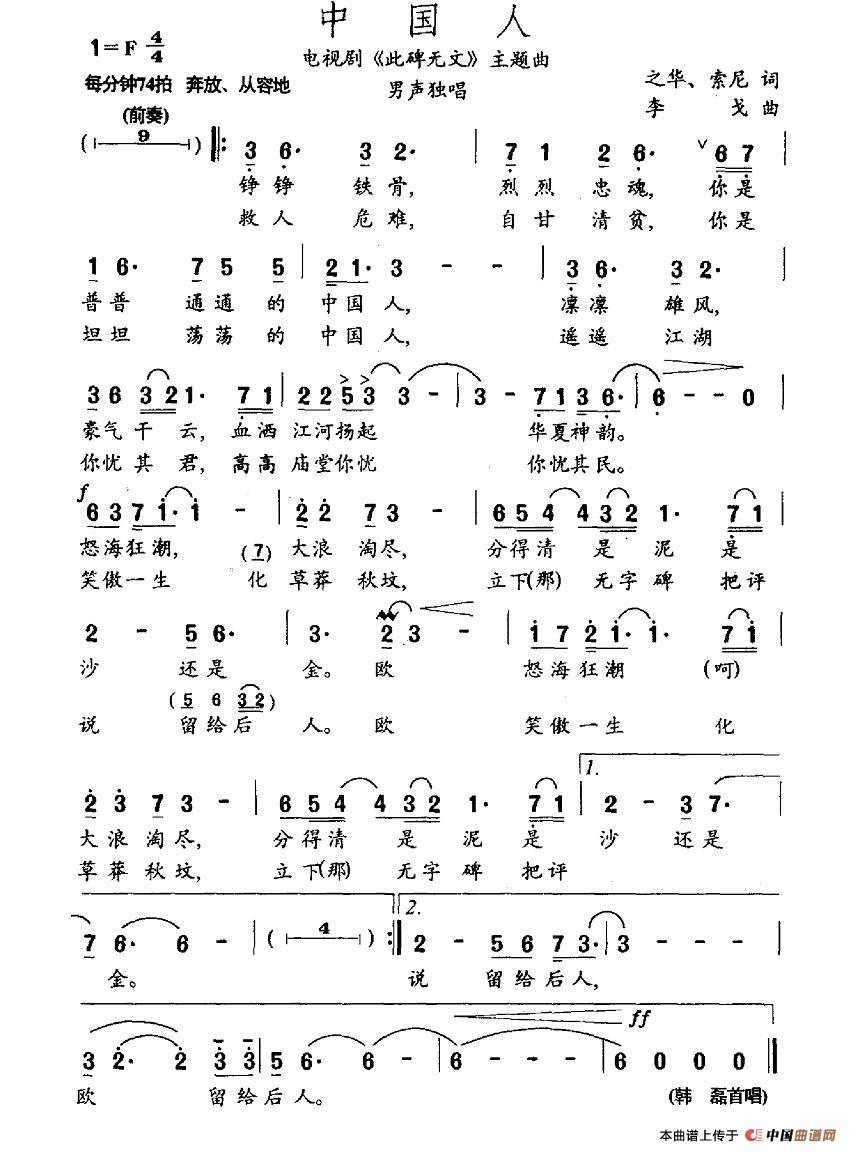 中 国 人
1=F 4/4
电视剧《此碑无文》主题曲
每分钟74拍 奔放、从容地
男声独唱
之华、索尼 词
李 戈 曲
(前奏)
( 9 ) 3 6· 3 2· 7 1 2 6· 6 7
铮铮 铁骨, 烈烈 忠魂, 你是
救人 危难, 自甘 清贫, 你是
1 6· 7 5 5 2 1· 3 - - 3 6· 3 2·
普普 通通 的 中国 人, 凛凛 雄风,
坦坦 荡荡 的 中国 人, 遥遥 江湖
3 6 3 2 1· 7 1 2 2 5 3 3 - 3 - 7 1 3 6· 6 - - 0
豪气 干 云, 血洒 江河扬起 华夏神韵。
你忧 其 君, 高高 庙堂你忧 你忧其民。
f
6 3 7 1· 1 - 2 2 7 3 - 6 5 4 4 3 2 1· 7 1
怒海狂潮, (7) 大浪 淘尽, 分得清 是 泥 是
笑傲一生 化 草莽 秋坟, 立下(那) 无字 碑 把评
2 - 5 6· 3· 2 3 - 1 7 2 1· 1· 7 1
沙 还是 金。 欧 怒海狂潮 (呵)
(5 6 3 2)
说 留给后 人。 欧 笑傲一生 化
1.
2 3 7 3 - 6 5 4 4 3 2 1· 7 1 2 - 3 7·
大浪 淘尽, 分得清 是 泥 是 沙 还是
草莽 秋坟, 立下(那) 无字 碑 把评
2.
7 6· 6 - ( 4 ) 2 - 5 6 7 3· 3 - -
金。 说 留给后人,
ff
3 2· 2 3 3 5 6· 6 - 6 - - - 6 0 0 0
欧 留给后人。 (韩 磊首唱)
本曲谱上传于 中国曲谱网